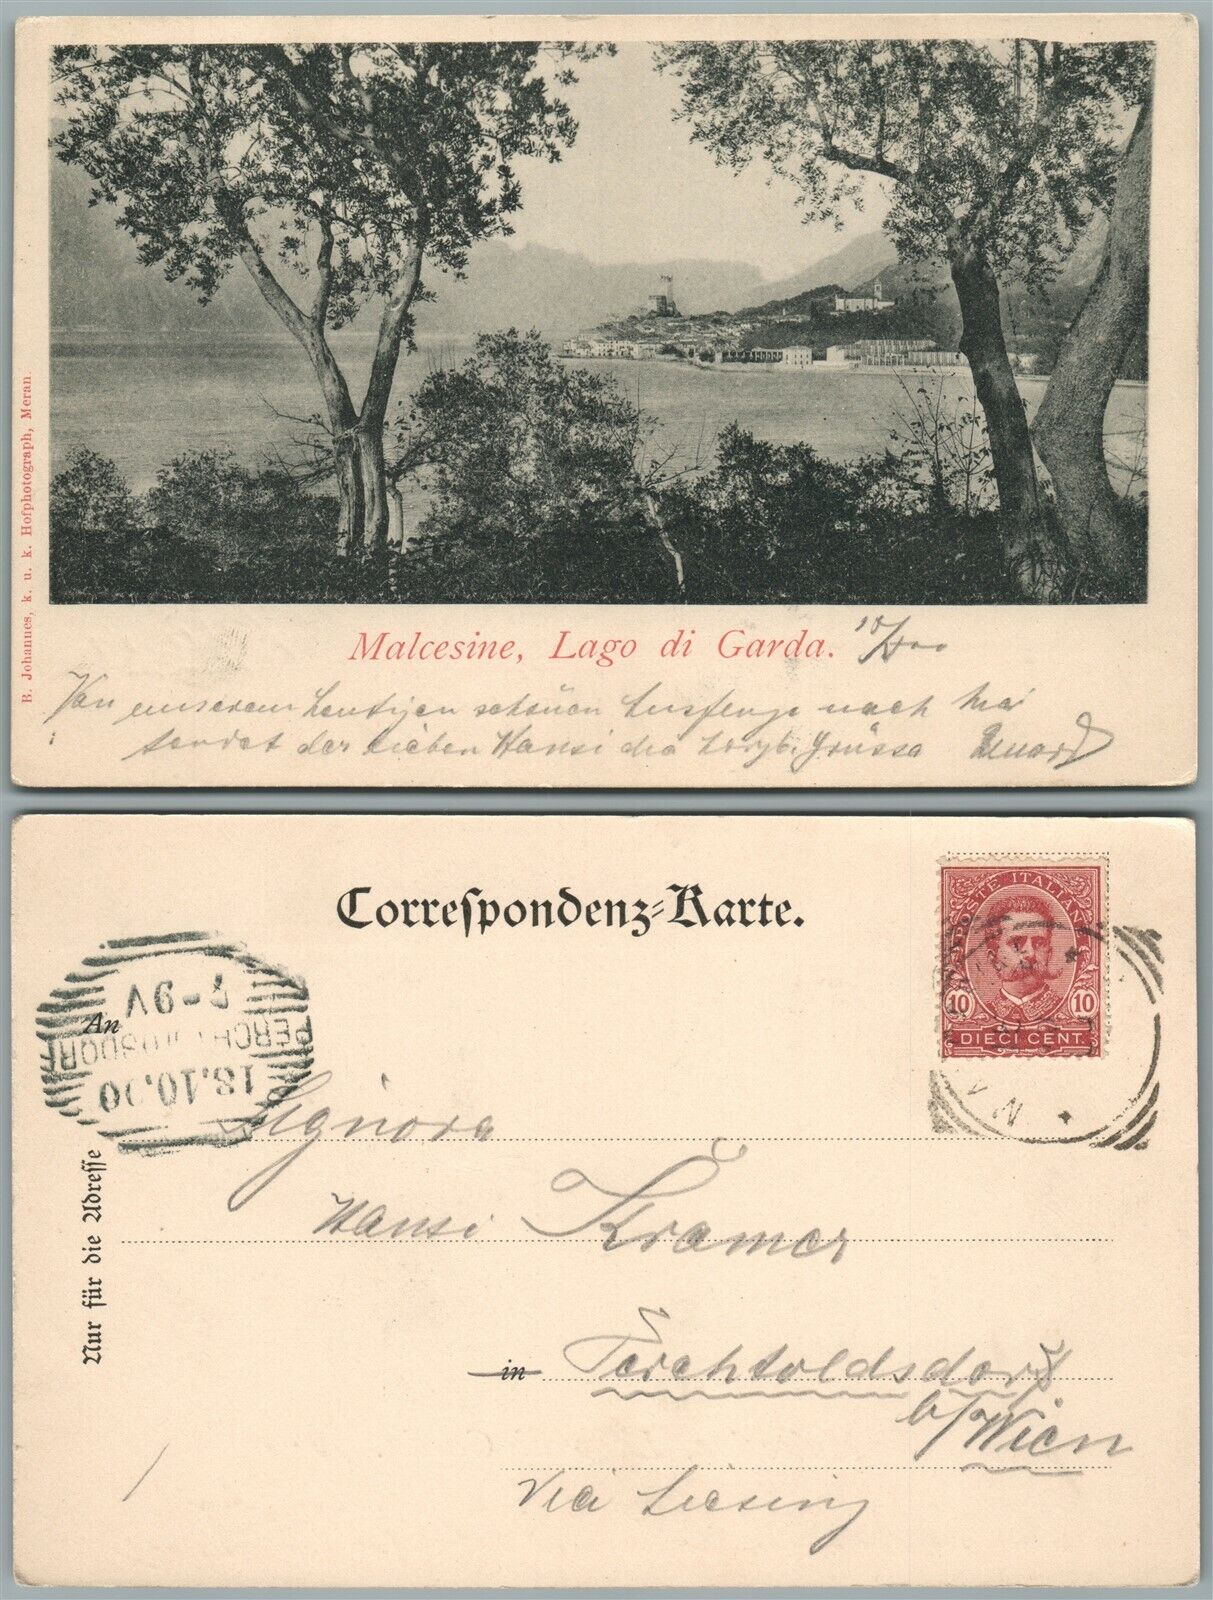 B. Johannes, k. u. k. Hofphotograph, Meran.
Malcesine, Lago di Garda.
Von unserem heutigen schönen Ausfluge nach Mal
sendet der lieben Hansi die herzl. Grüsse
Correſpondenz-Karte.
POSTE ITALIANE
10 10
DIECI CENT.
7-9V
PERCHTOLDSDORF
18.10.00
An
Signora
Hansi Kramer
in Perchtoldsdorf
b/Wien
via Liesing
Nur für die Adreſſe